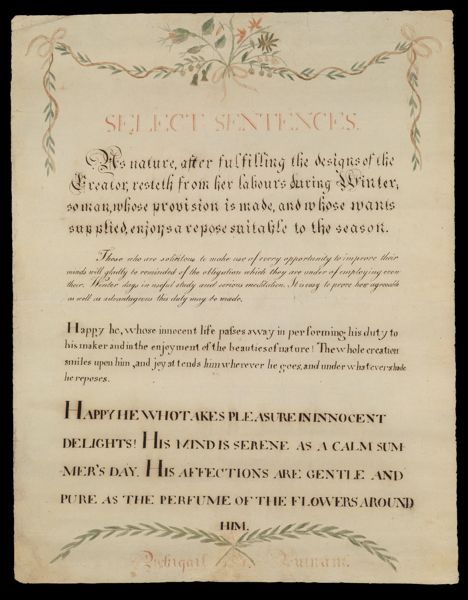 SELECT SENTENCES.
As nature, after fulfilling the designs of the
Creator, resteth from her labours during Winter;
so man, whose provision is made, and whose wants
supplied, enjoys a repose suitable to the season.
Those who are solicitous to make use of every opportunity to improve their
minds will gladly be reminded of the obligation which they are under of employing even
their Winter days in useful study and serious meditation. It is easy to prove how agreeable
as well as advantageous this duty may be made.
Happy he, whose innocent life passes away in performing his duty to
his maker and in the enjoyment of the beauties of nature! The whole creation
smiles upon him, and joy attends him wherever he goes, and under whatever shade
he reposes.
HAPPY HE WHO TAKES PLEASURE IN INNOCENT
DELIGHTS! HIS MIND IS SERENE AS A CALM SUM-
MER'S DAY. HIS AFFECTIONS ARE GENTLE AND
PURE AS THE PERFUME OF THE FLOWERS AROUND
HIM.
Abigail Putnam.